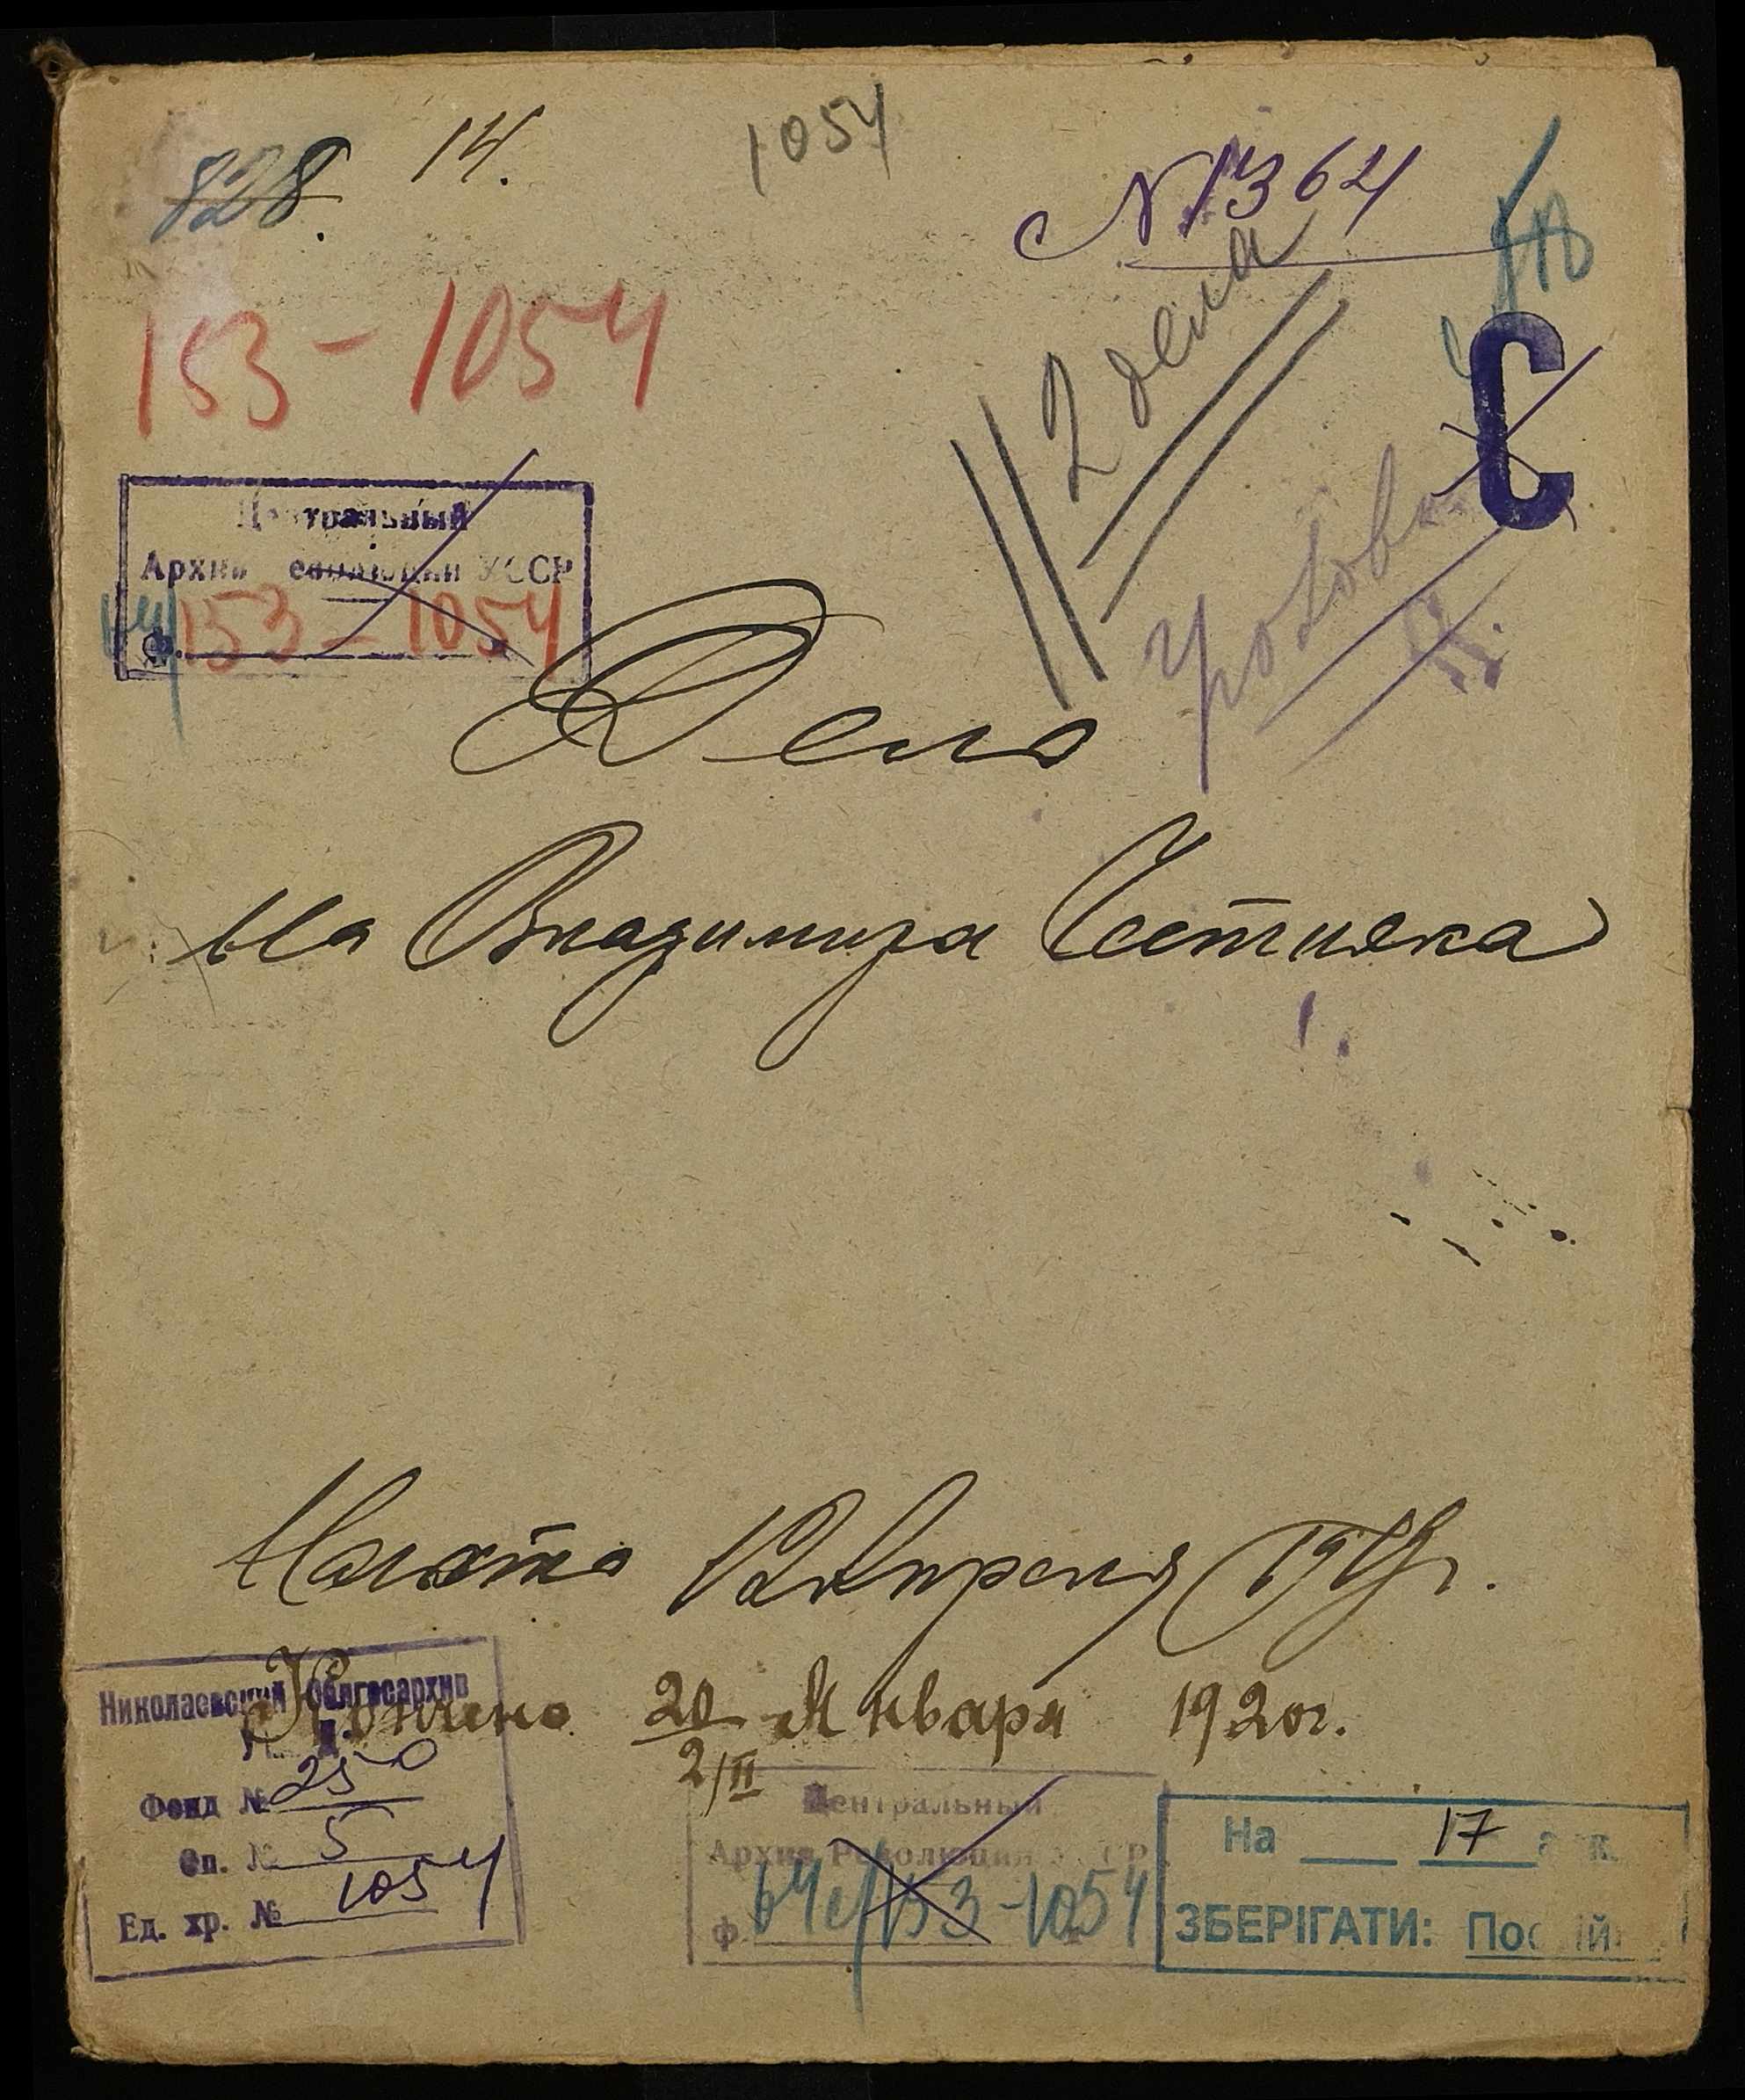 828. 14. 1054
№ 1364
153-1054
2 дела
С
Центральный
Архив Революции УССР
Ф. 153-1054
Дело
На Владимира
Начато 12 Апреля 1919 г.
Кончено 20 Января 1920 г.
2/II
Николаевский облгосархив
Фонд № 250
Оп. № 5
Ед. хр. № 1054
Центральный
Архив Революции УССР
ф. 64с/153-1054
На 17 арк.
ЗБЕРІГАТИ: Постійно